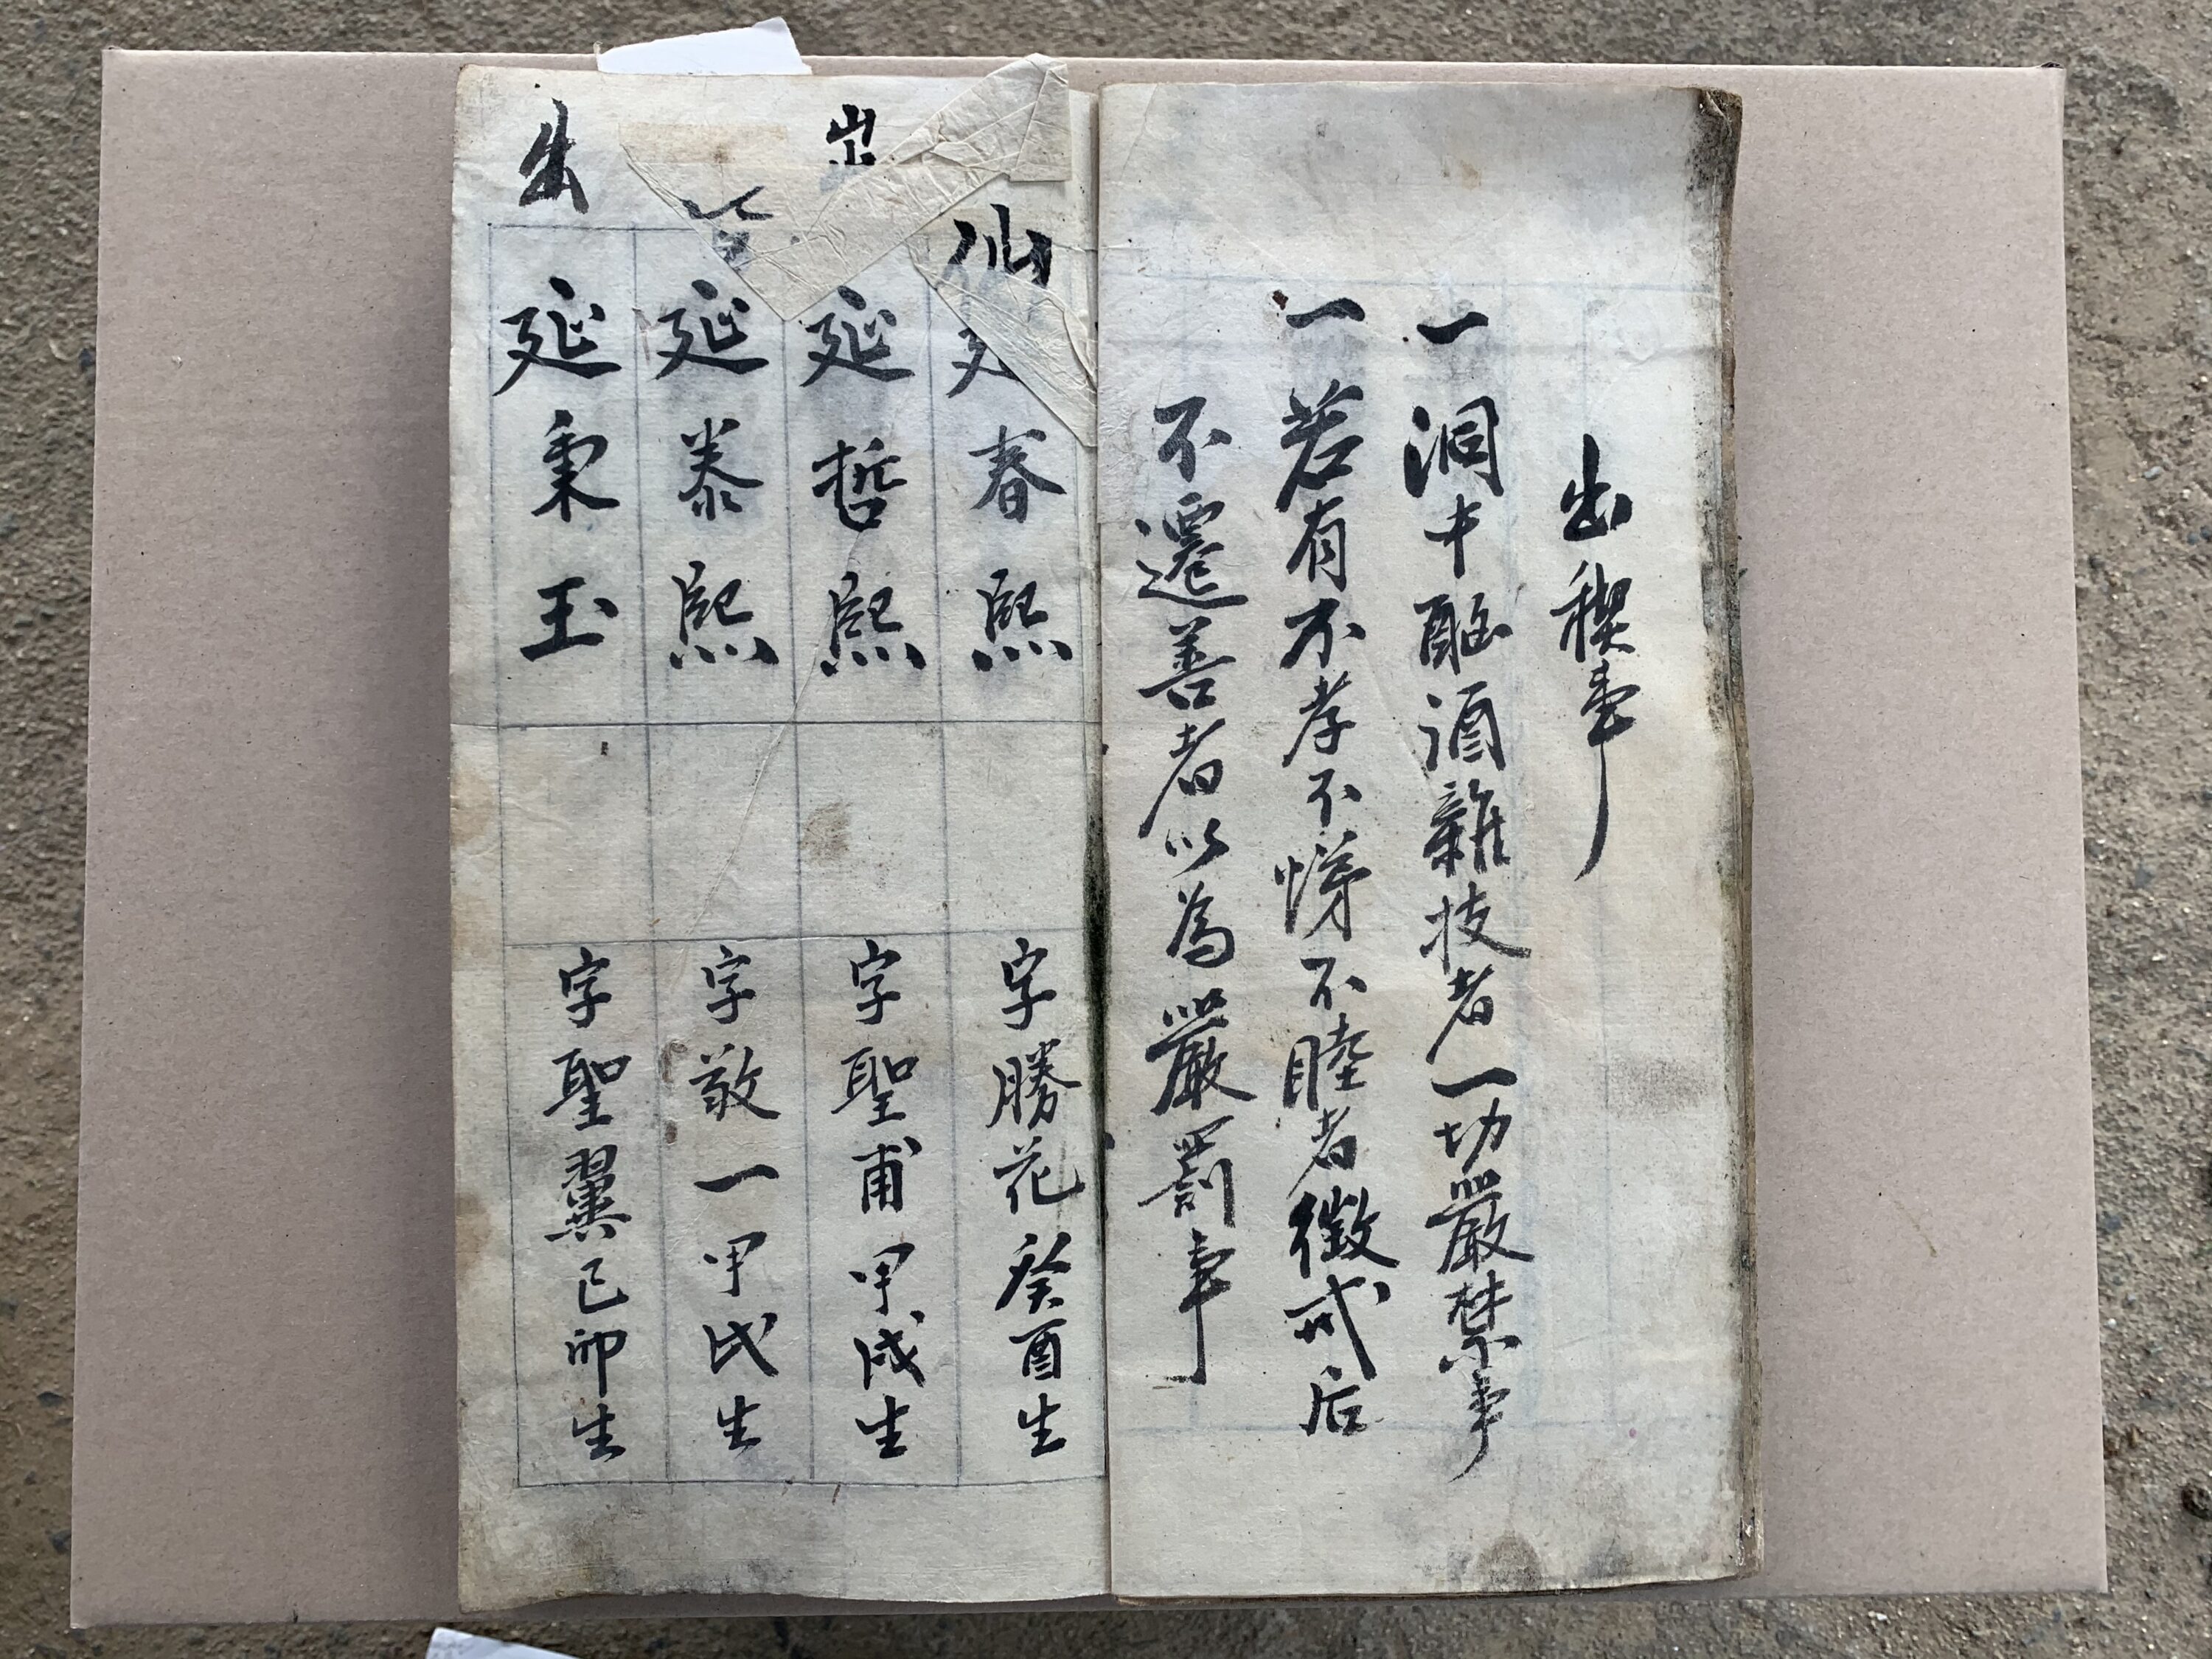 出稧事
一洞中酗酒雜技者一切嚴禁事
一若有不孝不悌不睦者徵戒后
不遷善者以為嚴罰事
仙
春熙
字勝花癸酉生
出
延哲熙
字聖甫甲戌生
延泰熙
字敬一甲戌生
出
延秉玉
字聖翼己卯生